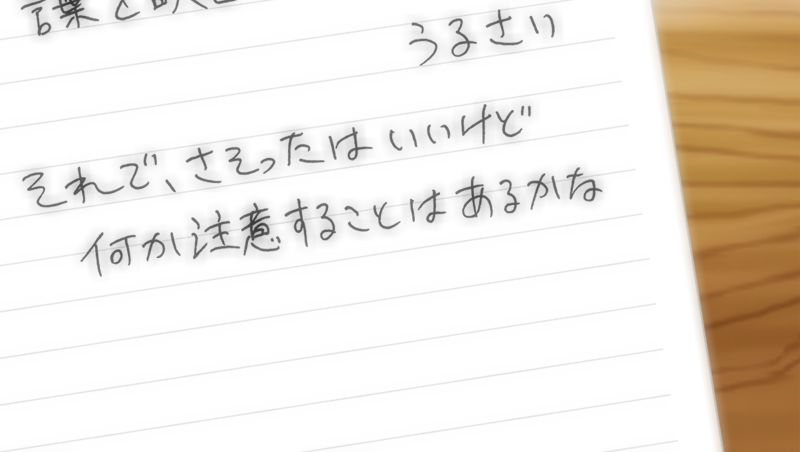 言葉と
うるさい
それで、さそったはいいけど
何か注意することはあるかな